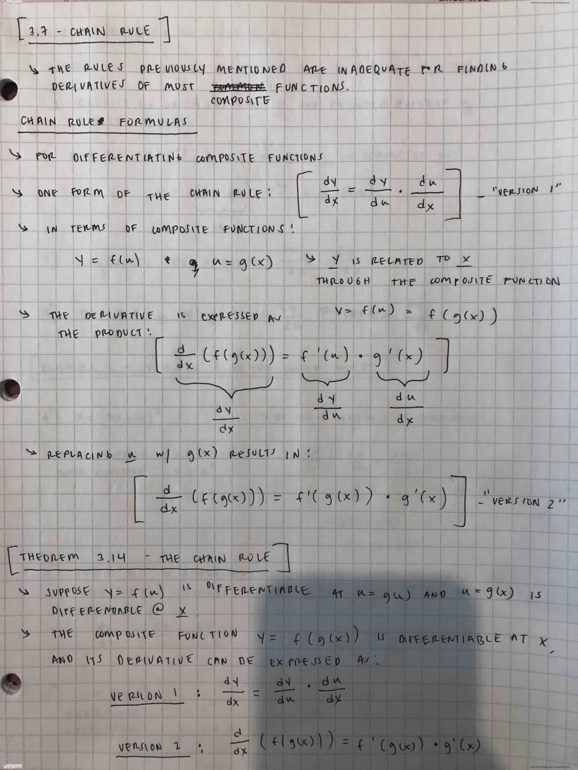 [3.7 - CHAIN RULE]
↳ THE RULES PREVIOUSLY MENTIONED ARE INADEQUATE FOR FINDING
DERIVATIVES OF MOST COMMON FUNCTIONS.
COMPOSITE
CHAIN RULE FORMULAS
↳ FOR DIFFERENTIATING COMPOSITE FUNCTIONS
↳ ONE FORM OF THE CHAIN RULE: [dy/dx = dy/du · du/dx] - "VERSION 1"
↳ IN TERMS OF COMPOSITE FUNCTIONS:
y = f(u) & u = g(x)
↳ y IS RELATED TO x
THROUGH THE COMPOSITE FUNCTION
y = f(u) = f(g(x))
↳ THE DERIVATIVE IS EXPRESSED AS
THE PRODUCT:
[d/dx (f(g(x))) = f'(u) · g'(x)]
dy/dx dy/du du/dx
↳ REPLACING u w/ g(x) RESULTS IN:
[d/dx (f(g(x))) = f'(g(x)) · g'(x)] - "VERSION 2"
[THEOREM 3.14 - THE CHAIN RULE]
↳ SUPPOSE y = f(u) IS DIFFERENTIABLE AT u = g(x) AND u = g(x) IS
DIFFERENTIABLE @ x
↳ THE COMPOSITE FUNCTION y = f(g(x)) IS DIFFERENTIABLE AT x,
AND ITS DERIVATIVE CAN BE EXPRESSED AS:
VERSION 1 : dy/dx = dy/du · du/dx
VERSION 2 : d/dx (f(g(x))) = f'(g(x)) · g'(x)